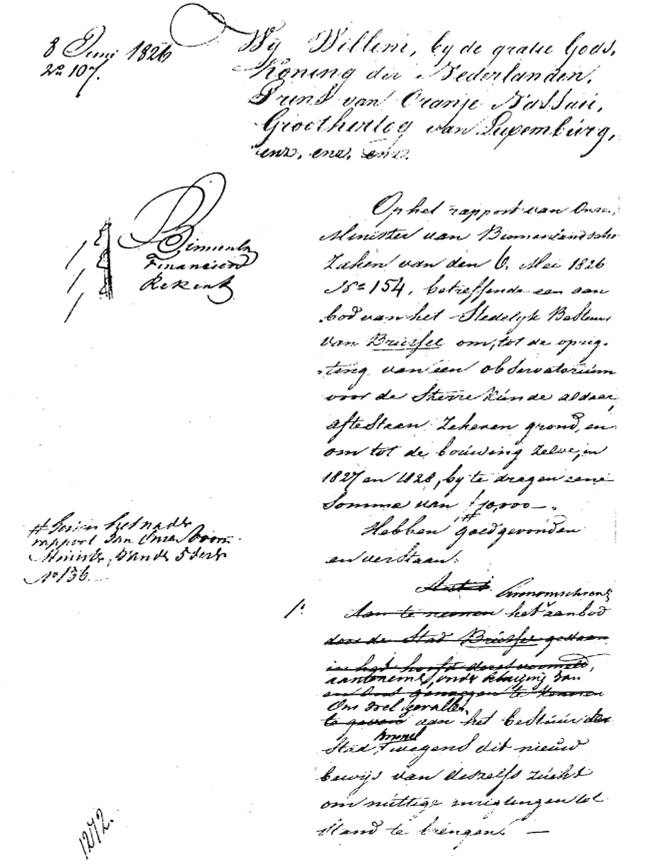 8 Juni 1826
No 107.
Wij Willem, by de gratie Gods,
Koning der Nederlanden,
Prins van Oranje Nassau,
Groothertog van Luxemburg,
enz. enz. enz.
Binnenl
Financien
Rekenk
Op het rapport van Onze
Minister van Binnenlandsche
Zaken van den 6. Mei 1826
No 154, betreffende een aan
bod van het Stedelyk Bestuur
van Brussel om, tot de oprig-
ting van een observatorium
voor de Sterrekunde aldaar,
afte staan zekeren grond, en
om tot de bouwing zelve, in
1827 en 1828, by te dragen eene
Somme van f 10,000 -.
# Gezien het nader
rapport van Onzen voorn.
Minister, van de 5 dezer
No 136
Hebben # goedgevonden
en verstaan:
1o
Aan te nemen het aanbod
door de Stad Brussel gedaan
aantenemen, onder betuiging van
Ons welgevallen
te geven aan het bestuur der
Stad Brussel wegens dit nieuw
bewys van deszelfs zucht
om nuttige inrigtingen tot
stand te brengen. —
1272.